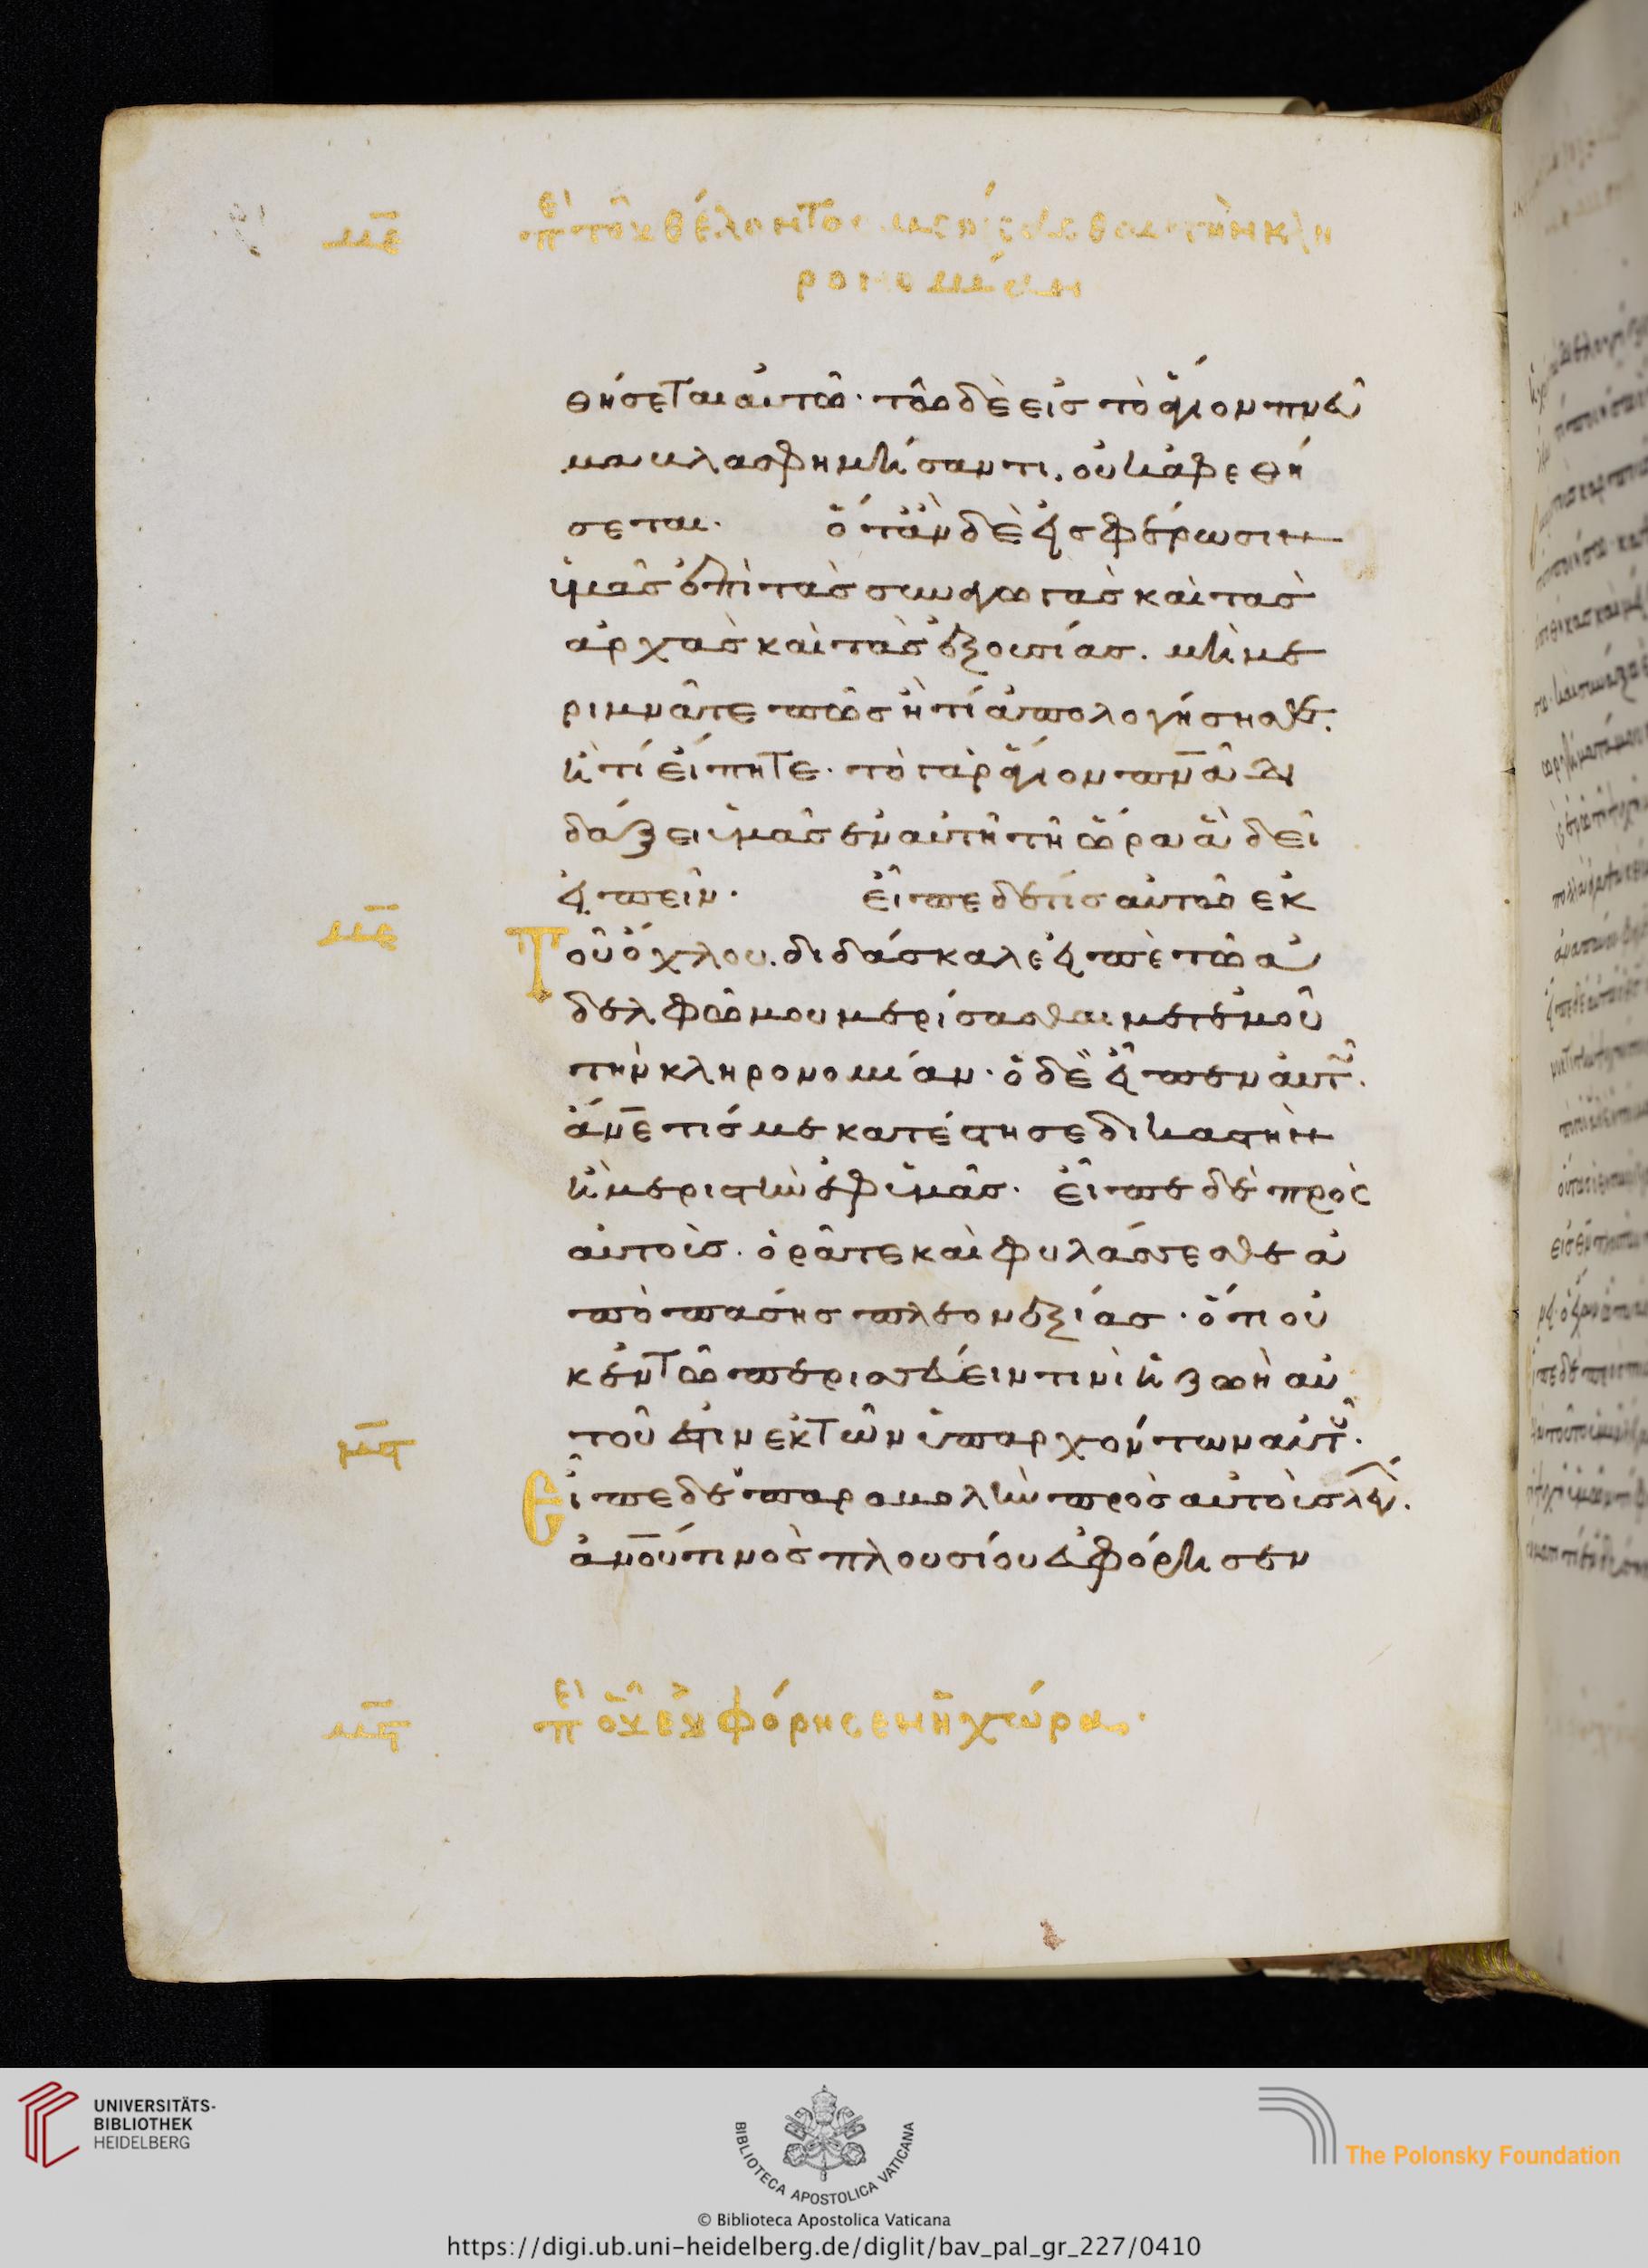 με περὶ τοῦ θέλοντος μερίσασθαι τὴν κλη
ρονομίαν
θήσεται αὐτῶ· τῶ δὲ εἰς τὸ ἅγιον πνεῦ
μα βλασφημήσαντι. οὐκ ἀφεθή
σεται. ὅταν δὲ εἰσφέρωσιν
ὑμᾶς ἐπὶ τὰς συναγωγὰς καὶ τὰς
ἀρχὰς καὶ τὰς ἐξουσίας. μὴ με
ριμνᾶτε πῶς ἢ τί ἀπολογήσησθε.
ἢ τί εἴπητε. τὸ γὰρ ἅγιον πνα δι
δάξει ὑμᾶς ἐν αὐτῆ τῆ ὥρα ἃ δεῖ
εἰπεῖν. εἶπε δέ τις αὐτῶ ἐκ
με Τοῦ ὄχλου. διδάσκαλε εἰπὲ τῶ ἀ
δελφῶ μου μερίσασθαι μετ ἐμοῦ
τὴν κληρονομίαν· ὁ δὲ εἶπεν αὐτ.
ἄνε τίς με κατέστησε δικαστὴν
ἢ μεριστὴν ἐφ ὑμᾶς. εἶπε δὲ πρὸς
αὐτούς. ὁρᾶτε καὶ φυλάσσεσθε ἀ
πὸ πάσης πλεονεξίας. ὅτι οὐ
κ ἐν τῶ περισσεύειν τινὶ ἡ ζωὴ αὐ
τοῦ ἐστιν ἐκ τῶν ὑπαρχόντων αὐτ.
μϛ Εἶπε δὲ παραβολὴν πρὸς αὐτοὺς λέγ.
ἀνου τινὸς πλουσίου εὐφόρησεν
μϛ περὶ οὗ εὐφόρησεν ἡ χώρα.
UNIVERSITÄTS-
BIBLIOTHEK
HEIDELBERG
BIBLIOTECA APOSTOLICA VATICANA
The Polonsky Foundation
© Biblioteca Apostolica Vaticana
https://digi.ub.uni-heidelberg.de/diglit/bav_pal_gr_227/0410